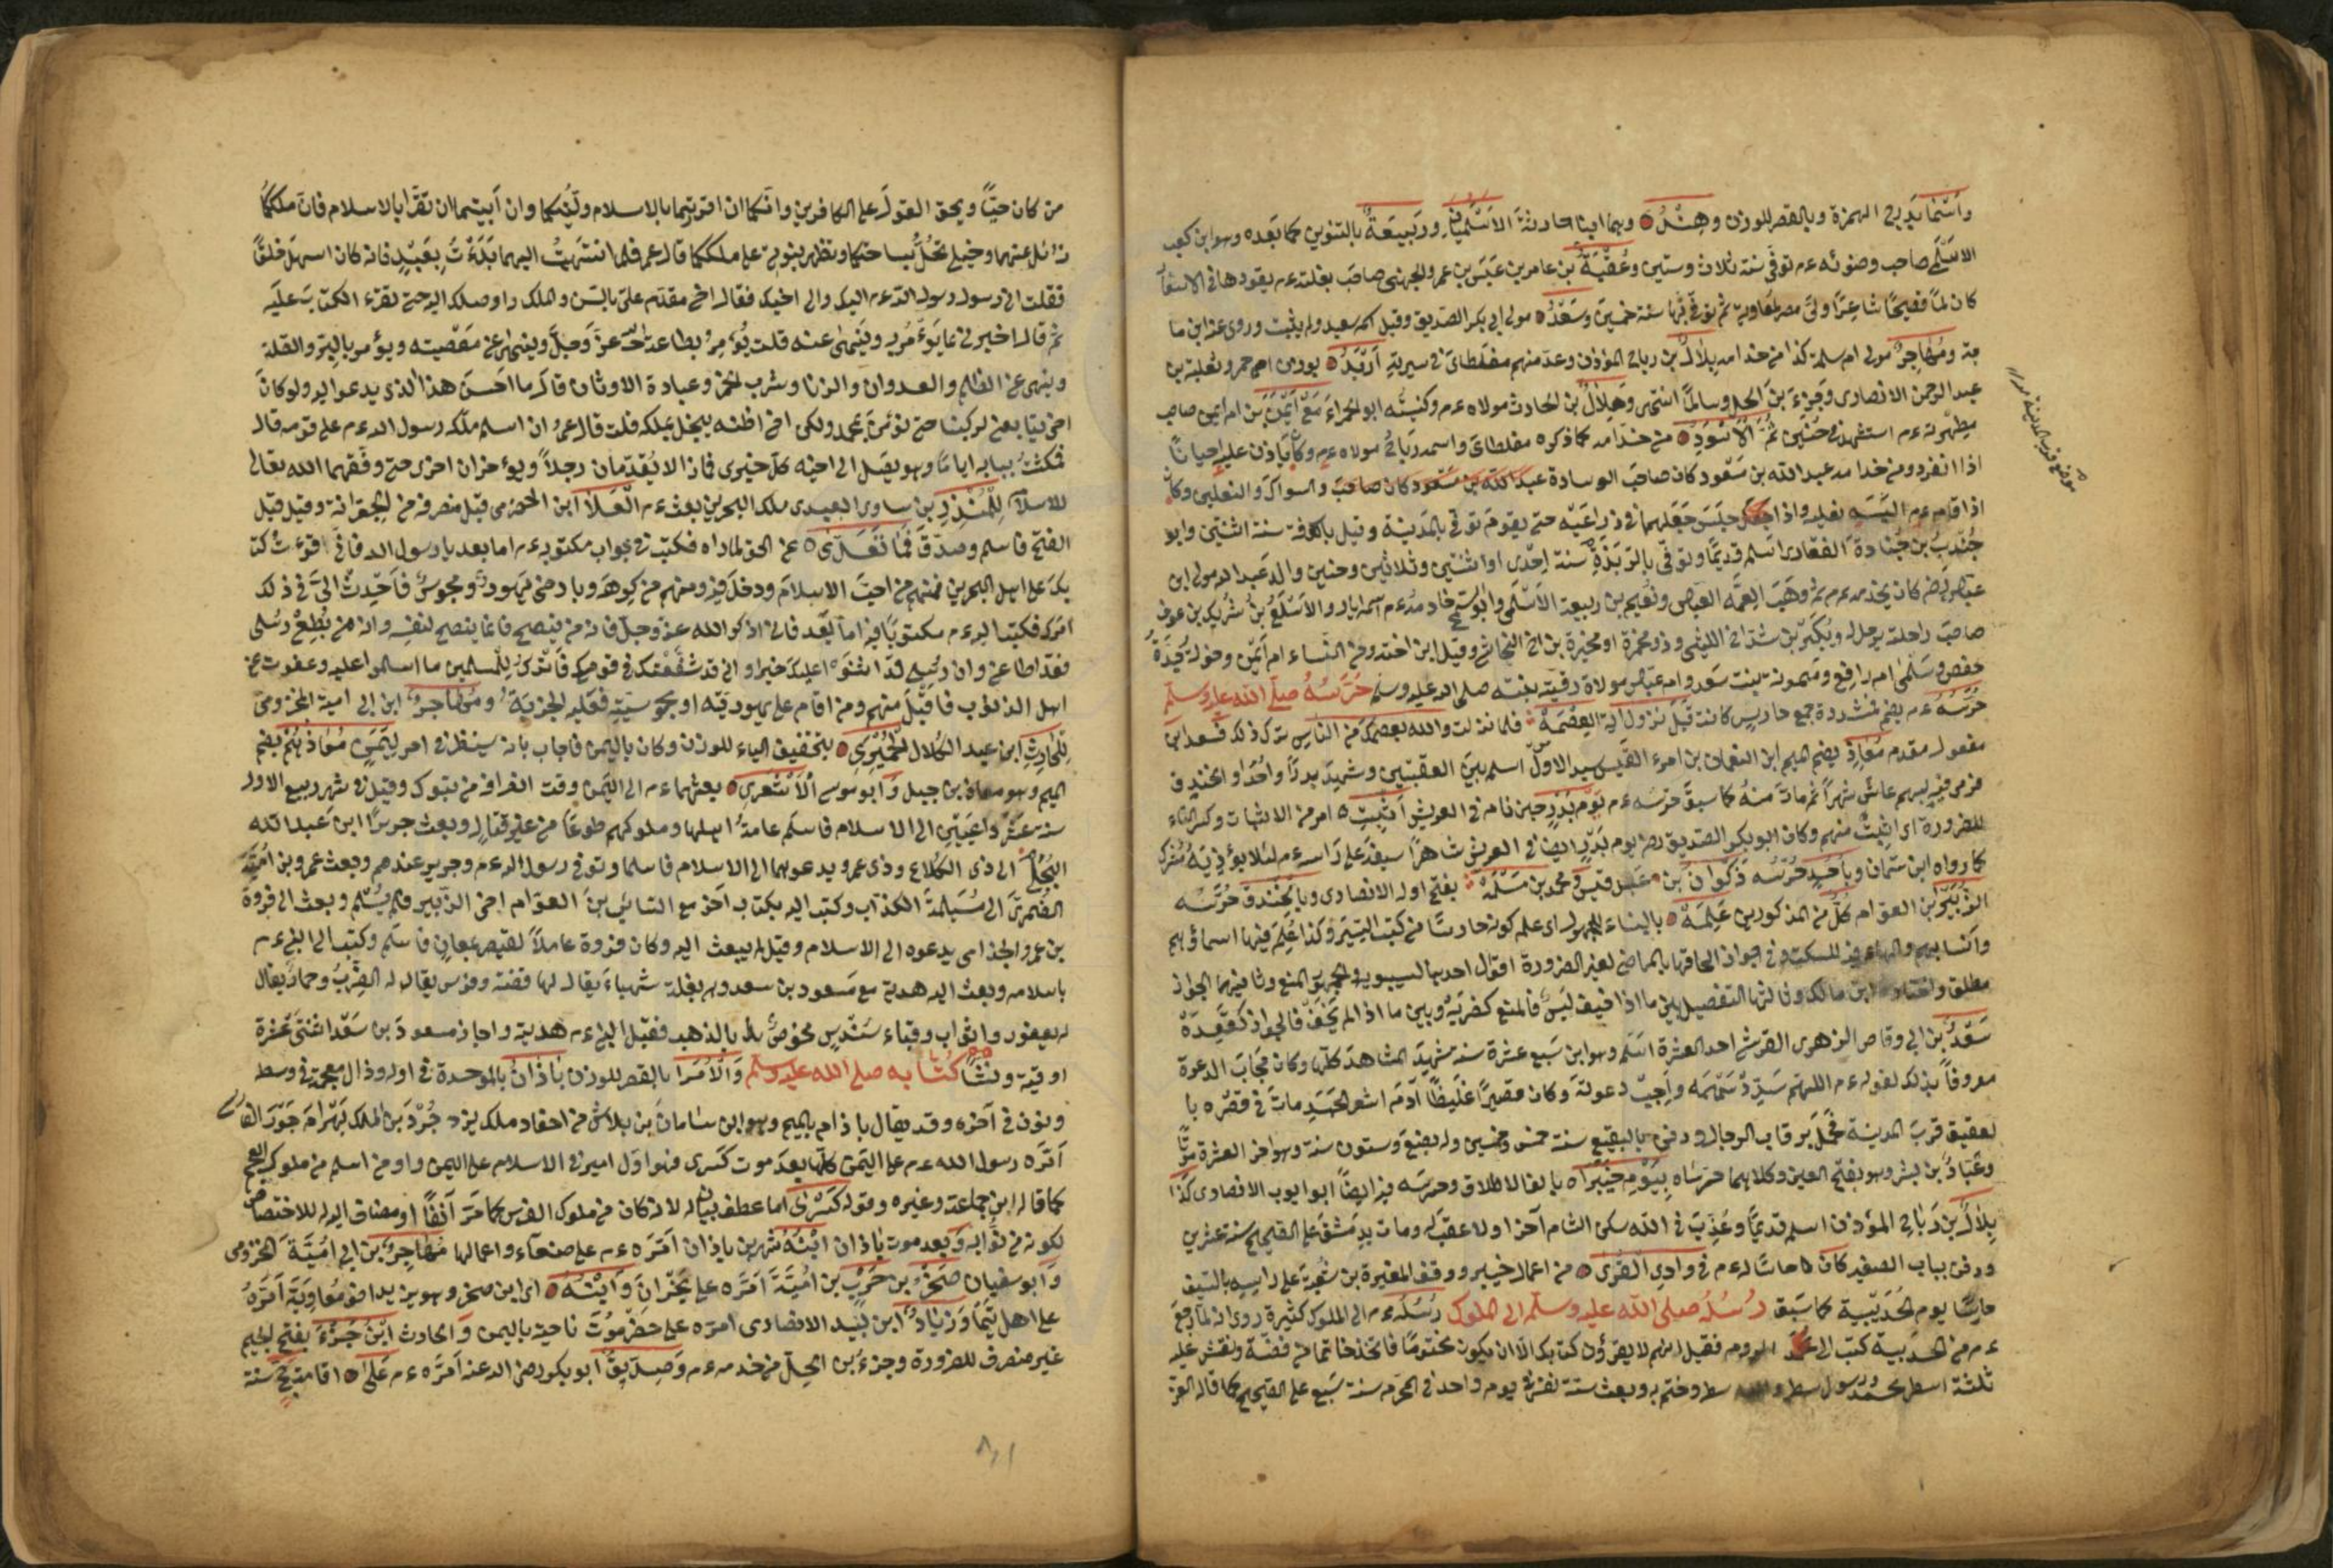 واسماء بدرج الهمزة وبالقصر للوزن وهند وهما ابنا حارثة الاسلميان وربيعة بالتنوين كما بعده وهو ابن كعب
الاسلمي صاحب وضوئه ءم توفي سنة ثلاث وستين وعقبة بن عامر بن عبس بن عمرو الجهني صاحب بغلته ءم يقودها في الاسفار
كان عالما فصيحا شاعرا ولي مصر لمعاوية ثم توفي بها سنة خمسين وسعد مولى ابي بكر الصديق وقيل اسمه سعيد ولم يثبت وروى عنه ابن ما
جة ومهاجر مولى ام سلمة كذا من خدامه بلال بن رباح المؤذن وعد منهم مغلطاي في سيرته اربد
عبد الرحمن الانصاري وجزء بن الحل وسالما انتهى وهلال بن الحارث مولاه ءم وكنيته ابو الحمراء مع ايمن بن ام ايمن صاحب
مطهرته ءم استشهد في حنين ثم الاسود من خدامه كما ذكره مغلطاي واسمه رباح مولاه ءم وكان ياذن عليه احيانا
اذا انفرد ومن خدامه عبد الله بن مسعود كان صاحب الوسادة عبد الله بن مسعود كان صاحب والسواك والنعلين وكان
اذا قام ءم البسه نعليه واذا جلس جعلهما في ذراعيه حتى يقوم توفي بالمدينة وقيل بالكوفة سنة اثنتين وابو
جندب بن جنادة الغفاري اسلم قديما وتوفي بالربذة سنة احدى او اثنتين وثلاثين وحنين والد عبد الله مولى ابن
صاحب راحلته يرحل له وبكير بن شداخ الليثي وذو مخمرة او مخبرة بن اخ النجاشي وقيل ابن اخته ومن النساء ام ايمن وخولة جدة
حفص وسلمى ام رافع وميمونة بنت سعد وام عياش مولاة رقية بنته صلى الله عليه وسلم حرسه صلى الله عليه وسلم
حرسه ءم بضم فشد ردة جمع حارس كانت قبل نزول اية العصمة فلما نزلت والله يعصمك من الناس ترك ذلك فسعد ابن
مفعول مقدم معاذ بضم الميم ابن النعمان بن امرء القيس سيد الاوس اسلم بين العقبتين وشهد بدرا واحدا والخندق
فرمي فيه بسهم عاش شهرا ثم مات منه كما سبق حرسه ءم يوم بدر حين نام في العريش اثبت امر من الاثبات وكسر التاء
للضرورة اي اثبت منهم وكان ابو بكر الصديق رض يوم بدر ايضا في العريش شاهرا سيفه على راسه ءم لئلا يؤذيه مشرك
كما رواه ابن سمان وباحد حرسه ذكوان بن عبد قيس ومحمد بن مسلمة بفتح اوله الانصاري وبالخندق حرسه
الزبير بن العوام كل من المذكورين علمه بالبناء للمجهول اي علم كونه حارسا من كتب السير وكذا علم فيها اسماؤهم
وانسابهم والهاء فيه للسكت وفي جواز الحاقها بالماضي لغير الضرورة اقوال احدها لسيبويه والجمهور المنع وثانيهما الجواز
مطلقا واختاره ابن مالك وثالثها التفصيل بين ما اذا خيف لبس فالمنع كضربه وبين ما اذا لم يخف فالجواز كقعده
سعد بن ابي وقاص الزهري القرشي احد العشرة اسلم وهو ابن سبع عشرة سنة شهد المشاهد كلها وكان مجاب الدعوة
معروفا بذلك لقوله ءم اللهم سدد سهمه واجب دعوته وكان قصيرا غليظا آدم اشعر الجسد مات في قصره با
لعقيق قرب المدينة فحمل برقاب الرجال ودفن بالبقيع سنة خمس وخمسين وله بضع وستون سنة وهو اخر العشرة موتا
وعباد بن بشر وهو بفتح العين وكلاهما حرساه بيوم خيبراه بالف الاطلاق وحرسه فيه ايضا ابو ايوب الانصاري كذا
بلال بن رباح المؤذن اسلم قديما وعذب في الله سكن الشام آخرا ولا عقب له ومات بدمشق على الصحيح سنة عشرين
ودفن بباب الصغير كان حارسا له ءم في وادي القرى من اعمال خيبر ووقف المغيرة بن شعبة على راسه بالسيف
حارسا يوم الحديبية كما سبق رسله صلى الله عليه وسلم الى الملوك رسله ءم الى الملوك كثيرة روي انه لما رجع
ءم من الحديبية كتب الى الروم فقيل انهم لا يقرؤن كتابك الا ان يكون مختوما فاتخذ خاتما من فضة ونقش عليه
ثلثة اسطر محمد سطر رسول سطر والله سطر وختم به وبعث ستة نفر في يوم واحد في المحرم سنة سبع على الصحيح كما قاله العز
موضع قرب المدينة
من كان حيا ويحق القول على الكافرين وانكما ان اقررتما بالاسلام وليتكما وان ابيتما ان تقرا بالاسلام فان ملككما
زائل عنهما وخيلي تحل بساحتكما وتظهر نبوتي على ملككما قال عمرو فلما انتهيت اليهما بدءت بعبد فانه كان اسهل خلقا
فقلت اني رسول رسول الله ءم اليك والى اخيك فقال اخي مقدم علي بالسن والملك وانا اوصلك اليه حتى تقرء الكتاب عليه
ثم قال اخبرني ما يؤمر به وينهى عنه قلت يؤمر بطاعة الله عز وجل وينهى عن معصيته ويؤمر بالبر والصلة
وينهى عن الظلم والعدوان والزنا وشرب الخمر وعبادة الاوثان قال ما احسن هذا الذي يدعو اليه ولو كان
اخي يتابعني لركبنا حتى نؤمن بمحمد ولكن اخي اظنه يبخل بملكه قلت قال عمرو ان اسلم ملكه رسول الله ءم على قومه قال
فمكثت ببابه اياما وهو يصل الى اخيه كل خبري فاذا لا يقدمان رجلا ويؤخران اخرى حتى وفقهما الله تعالى
للاسلام للمنذر بن ساوى العبدي ملك البحرين بعث ءم العلا ابن الحضرمي قبل منصرفه من الجعرانة وقيل قبل
الفتح فاسلم وصدق فما تعدى عن الحق لما راه فكتب في جواب مكتوبه ءم اما بعد يا رسول الله فاني اقرءت كتا
بك على اهل البحرين فمنهم من احب الاسلام ودخل فيه ومنهم من كرهه وبارضي يهود ومجوس فاحدث الي في ذلك
امرك فكتب اليه ءم مكتوبا فيه اما بعد فاني اذكر الله عز وجل فانه من ينصح فانما ينصح لنفسه وانه من يطع رسلي
فقد اطاعني وان رسلي قد اثنوا عليك خيرا واني قد شفعتك في قومك فاترك للمسلمين ما اسلموا عليه وعفوت عن
اهل الذنوب فاقبل منهم ومن اقام على يهوديته او مجوسيته فعليه الجزية ومهاجر ابن ابي امية المخزومي
للحارث ابن عبد الكلال الحميري بتخفيف الياء للوزن وكان باليمن فاجاب بانه سينظر في امره ليمن معاذ بضم
الميم وهو معاذ بن جبل وابو موسى الاشعري بعثهما ءم الى اليمن وقت انصرافه من تبوك وقيل في شهر ربيع الاول
سنة عشر داعيين الى الاسلام فاسلم عامة اهلها وملوكهم طوعا من غير قتال وبعث جريرا ابن عبد الله
البجلي الى ذي الكلاع وذي عمرو يدعوهما الى الاسلام فاسلما وتوفي رسول الله ءم وجرير عندهم وبعث عمرو بن امية
الضمري الى مسيلمة الكذاب وكتب اليه بكتاب آخر مع السائب بن العوام اخي الزبير فلم يسلم وبعث الى فروة
بن عمرو الجذامي يدعوه الى الاسلام وقيل لم يبعث اليه وكان فروة عاملا لقيصر بعمان فاسلم وكتب الى النبي ءم
باسلامه وبعث اليه هدية مع مسعود بن سعد وهي بغلة شهباء يقال لها فضة وفرس يقال له الضرب وحمار يقال
له يعفور واثواب وقباء سندس مخوص بالذهب فقبل النبي ءم هديته واجاز مسعود بن سعد اثنتى عشرة
اوقية ونشا كتابه صلى الله عليه وسلم والامرا بالقصر للوزن باذان بالموحدة في اوله وذال معجمة في وسطه
ونون في آخره وقد يقال باذام بالميم وهو ابن ساسان بن بلاش من احفاد ملك يزدجرد بن الملك بهرام جور الفارسي
امره رسول الله ءم على اليمن كلها بعد موت كسرى فهو اول امير في الاسلام على اليمن واول من اسلم من ملوك العجم
كما قاله ابن جماعة وغيره وقوله كسرى اما عطف بيان له لانه كان من ملوك الفرس كما مر آنفا او مضاف اليه للاختصاص
لكونه من نوابه وبعد موت باذان ابنه شهر بن باذان امره ءم على صنعاء واعمالها مهاجر بن ابي امية المخزومي
وابو سفيان صخر بن حرب بن امية امره على نجران وابنه اي ابن صخر وهو يزيد اخو معاوية امره
على اهل تيما وزياد ابن لبيد الانصاري امره على حضرموت ناحية باليمن والحارث ابن جزء بفتح الجيم
غير منصرف للضرورة وجزء بن الحل من خدمه ءم وصديق ابو بكر رضي الله عنه امره ءم على اقامة حج سنة